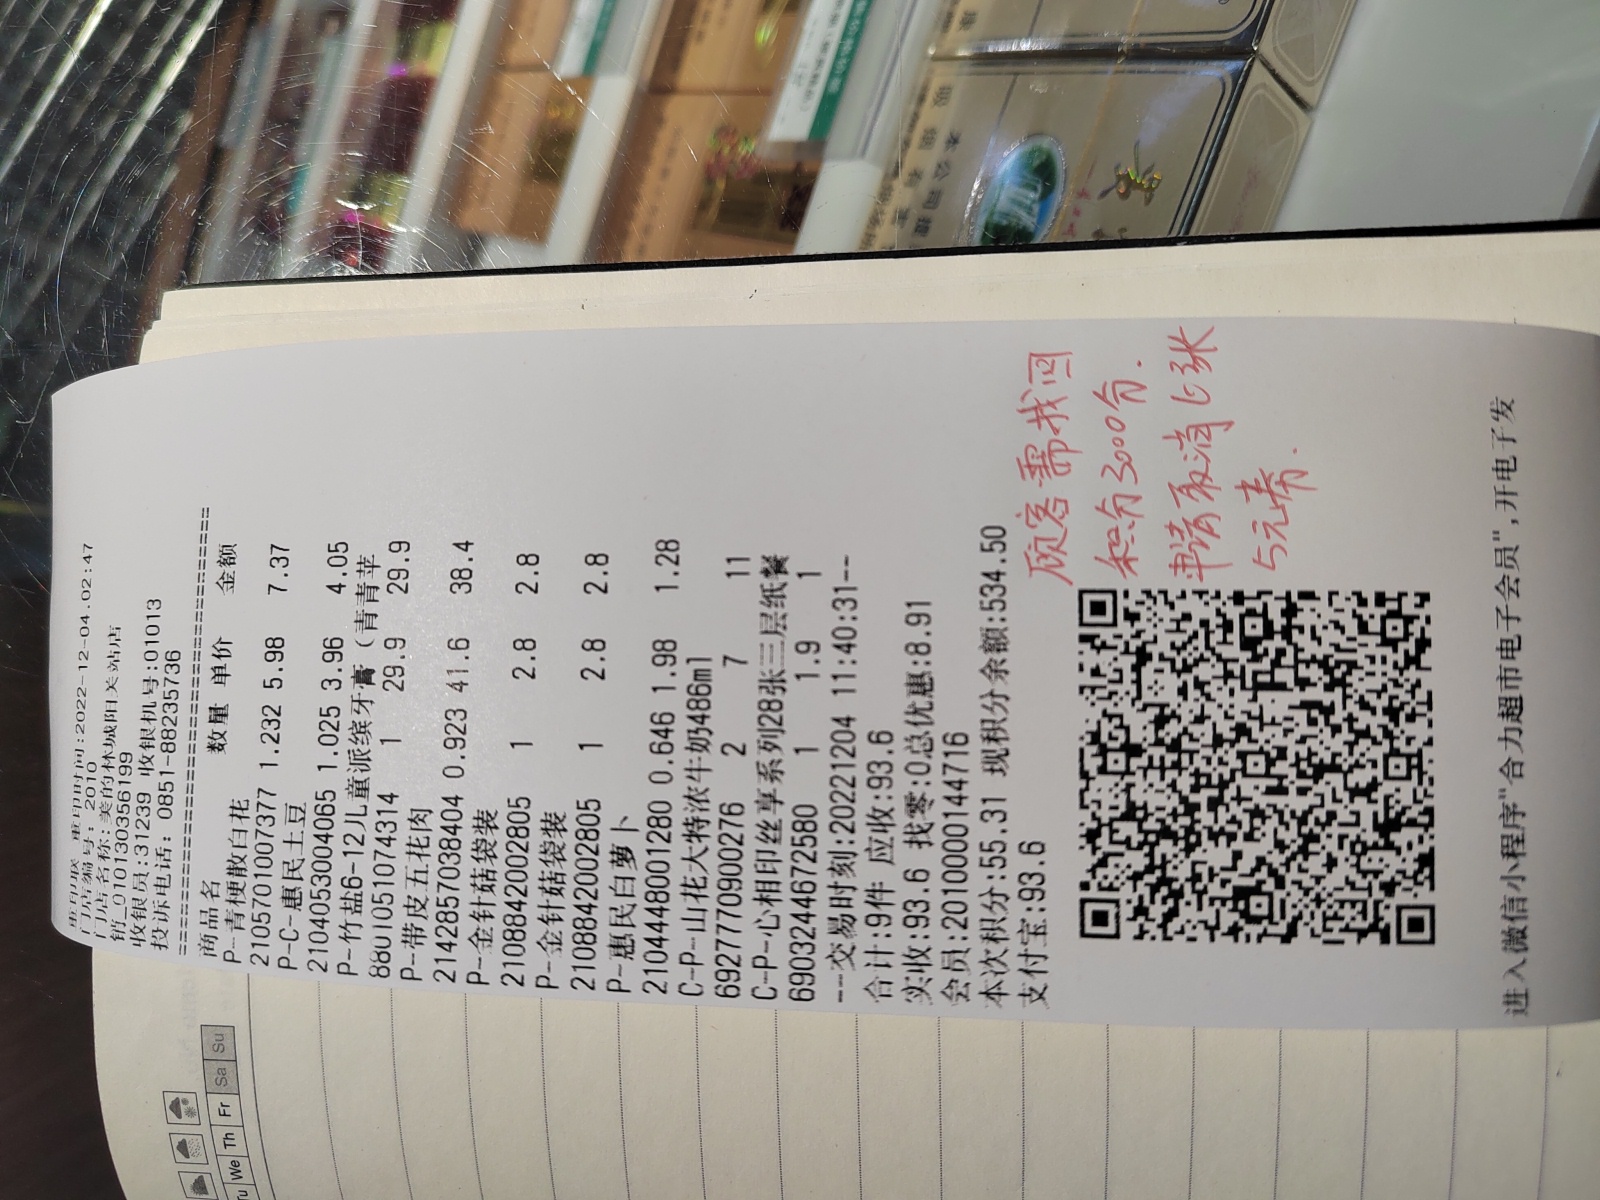 重印联 重印时间:2022-12-04.02:47
门店编号: 2010
门店名称:美的林城阳关站店
销_0101303056199
收银员:31239 收银机号:01013
投诉电话: 0851-88235736
================================
商品名 数量 单价 金额
P-青梗散白花
2105701007377 1.232 5.98 7.37
P-C-惠民土豆
2104053004065 1.025 3.96 4.05
P-竹盐6-12儿童派缤牙膏(青青苹
8801051074314 1 29.9 29.9
P-带皮五花肉
2142857038404 0.923 41.6 38.4
P-金针菇袋装
2108842002805 1 2.8 2.8
P-金针菇袋装
2108842002805 1 2.8 2.8
P-惠民白萝卜
2104448001280 0.646 1.98 1.28
C-P-山花大特浓牛奶486ml
6927770900276 2 7 11
C-P-心相印丝享系列28张三层纸餐
6903244672580 1 1.9 1
---交易时刻:20221204 11:40:31--
合计:9件 应收:93.6
实收:93.6 找零:0总优惠:8.91
会员:2010000144716
本次积分:55.31 现积分余额:534.50
支付宝:93.6
顾客需找回
积分3000分.
申请取消此张
5元券.
进入微信小程序"合力超市电子会员",开电子发
Tu We Th Fr Sa Su